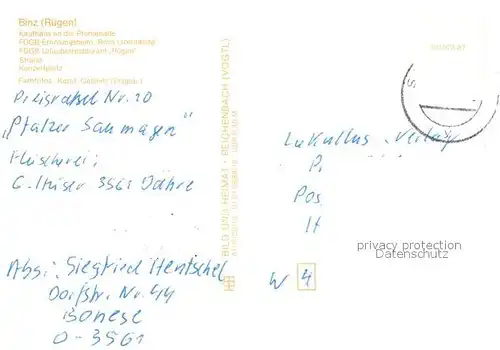 Binz (Rügen)
Kaufhaus an der Promenade
FDGB-Erholungsheim
FDGB-Urlauberrestaurant „Rügen"
Strand
Konzertplatz
Farbfotos:
Preisrätsel Nr. 20
„Pfälzer Saumagen"
Fleischrei:
3561 Dähre
Abs.: Siegfried Hentschel
Dorfstr. Nr. 44
Bonese
O-3561
BILD UND HEIMAT · REICHENBACH (VOGTL)
Lukullus Verlag
P
Pos
H
W 4
privacy protection
Datenschutz